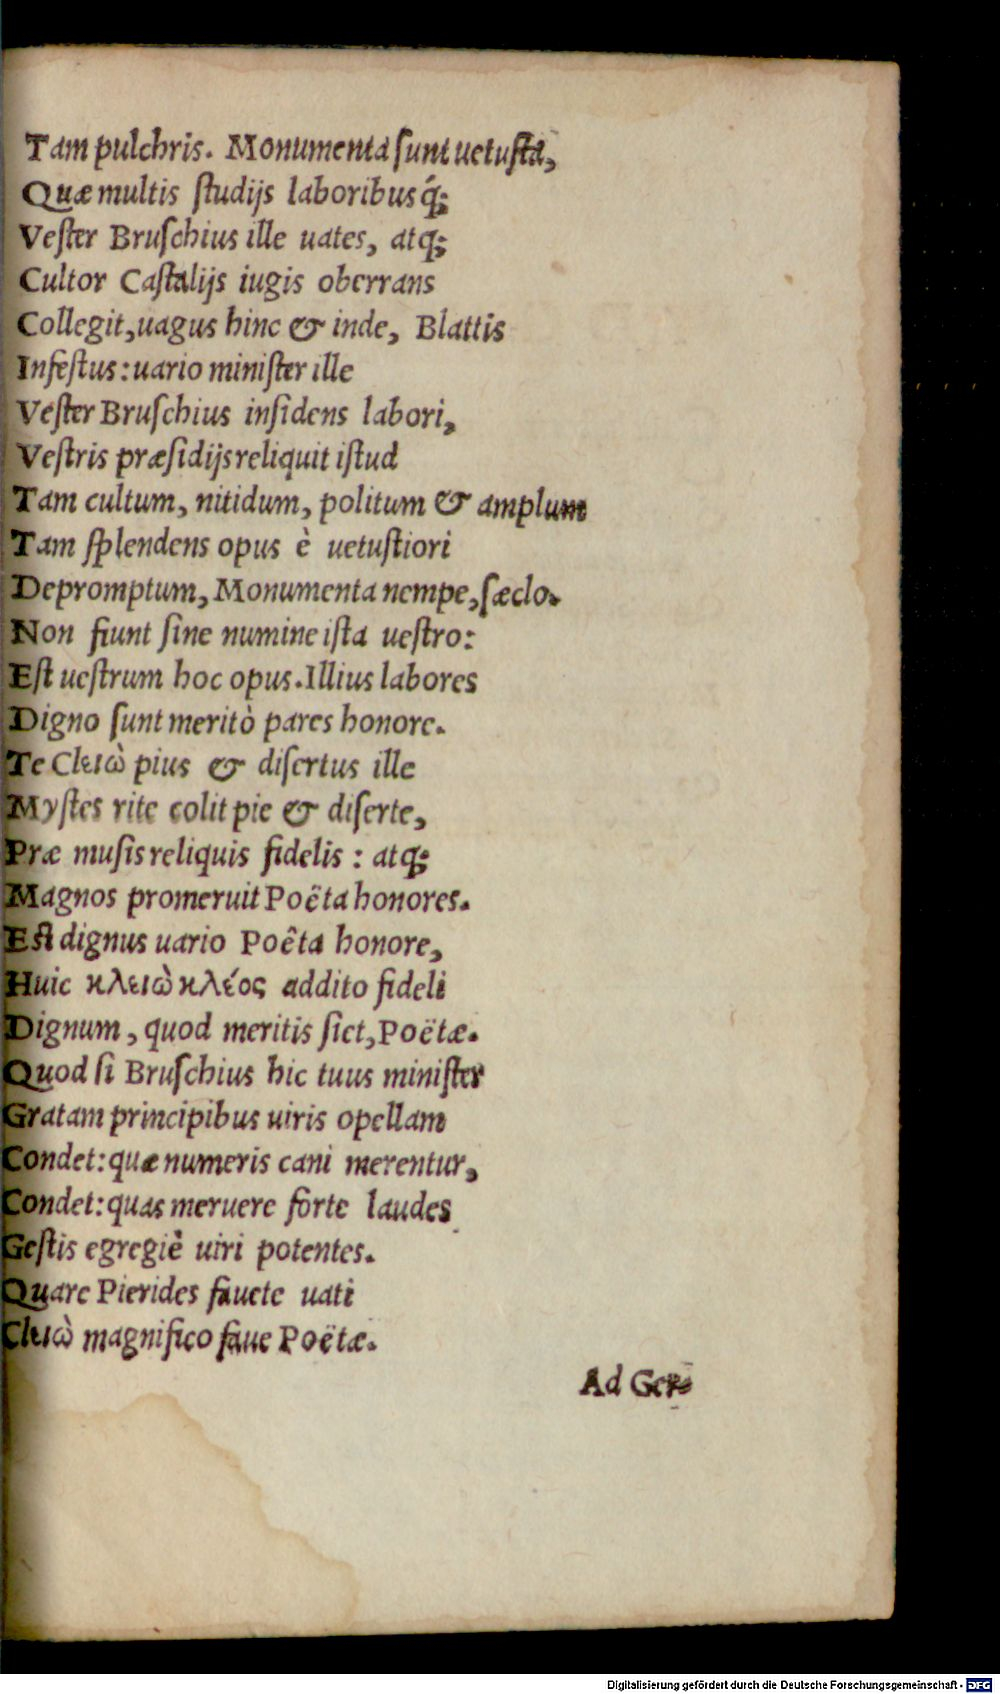 Tam pulchris. Monumenta sunt uetusta,
Quæ multis studijs laboribusq́;
Vester Bruschius ille uates, atq;
Cultor Castalijs iugis oberrans
Collegit, uagus hinc & inde, Blattis
Infestus: uario minister ille
Vester Bruschius insidens labori,
Vestris præsidijs reliquit istud
Tam cultum, nitidum, politum & amplum
Tam splendens opus è uetustiori
Depromptum, Monumenta nempe, sæclo.
Non fiunt sine numine ista uestro:
Est uestrum hoc opus. Illius labores
Digno sunt meritò pares honore.
Te Cleιὼ pius & disertus ille
Mystes rite colit pie & diserte,
Præ musis reliquis fidelis : atq;
Magnos promeruit Poëta honores.
Est dignus uario Poêta honore,
Huic κλειὼ κλέος addito fideli
Dignum, quod meritis siet, Poëtæ.
Quod si Bruschius hic tuus minister
Gratam principibus uiris opellam
Condet: quæ numeris cani merentur,
Condet: quas meruere forte laudes
Gestis egregiè uiri potentes.
Quare Pierides fauete uati
Cleιὼ magnifico faue Poëtæ.
Ad Ger-
Digitalisierung gefördert durch die Deutsche Forschungsgemeinschaft - DFG